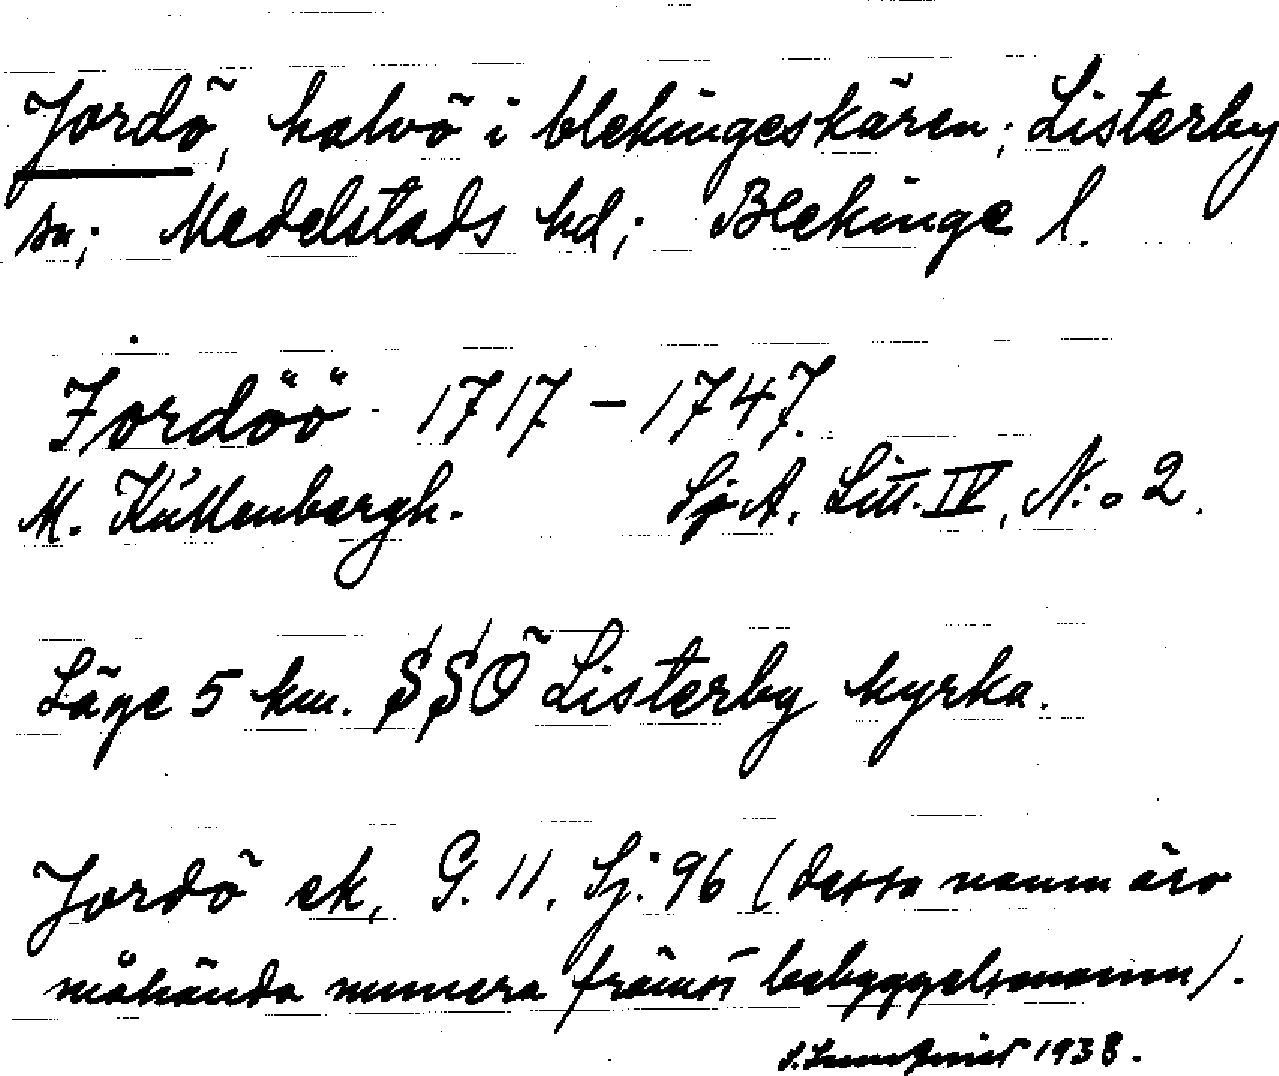 Jordö, halvö i blekingeskären; Listerby
sn; Medelstads hd; Blekinge l.
Jordöö 1717 – 1747.
M. Küllenbergh. Sj. A. Litt. IV, N:o 2.
Läge 5 km. SSÖ Listerby kyrka.
Jordö ek, G. 11, Sj. 96 (dessa namn äro
måhända numera främst bebyggelsenamn).
1938.